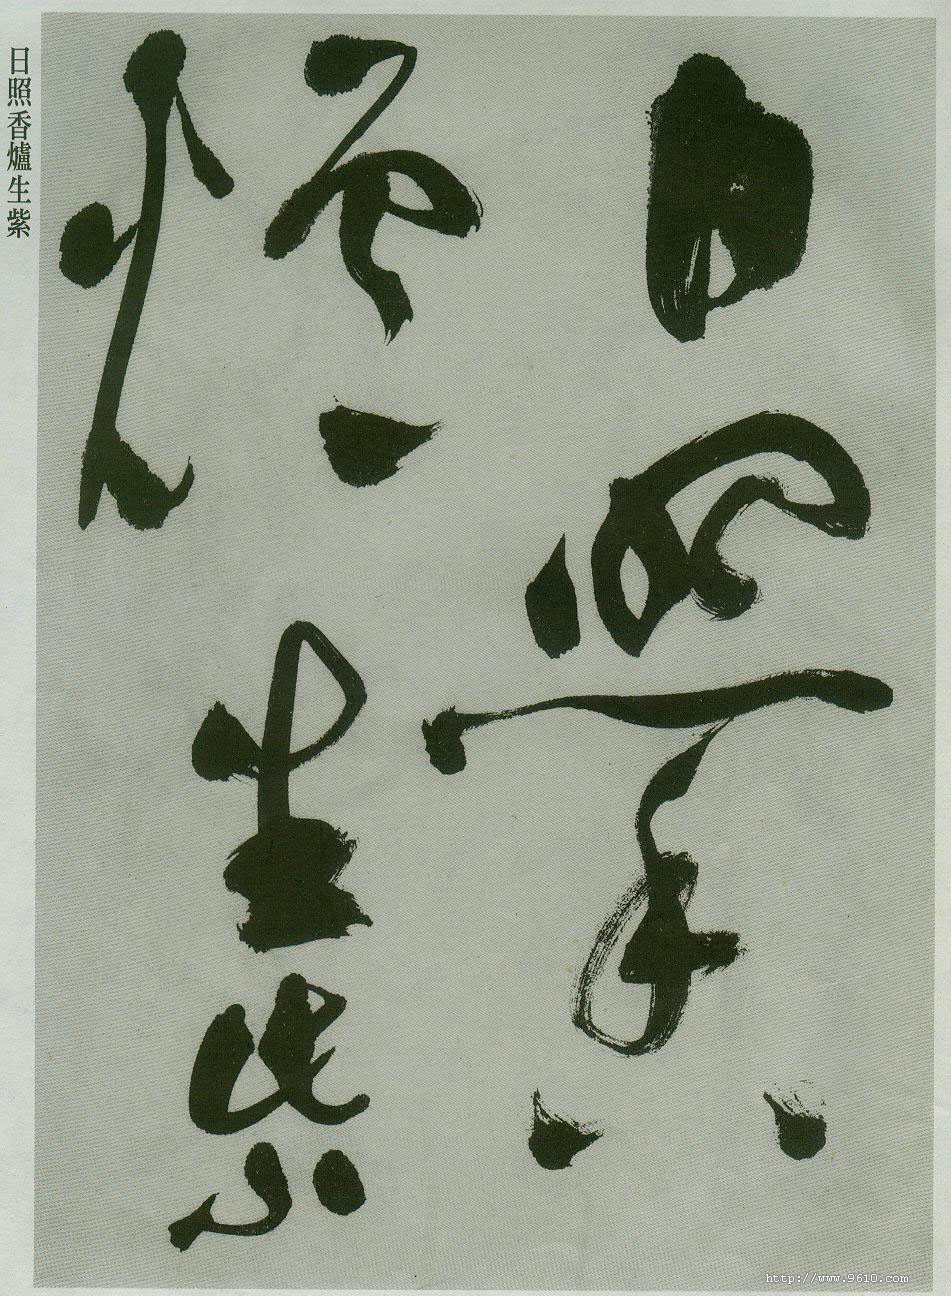 日照香
爐生紫
日照香爐生紫
http://www.9610.com